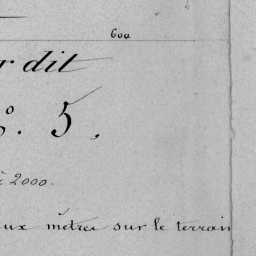 600
r dit
º. 5.
à 2000.
ux mètres sur le terrain